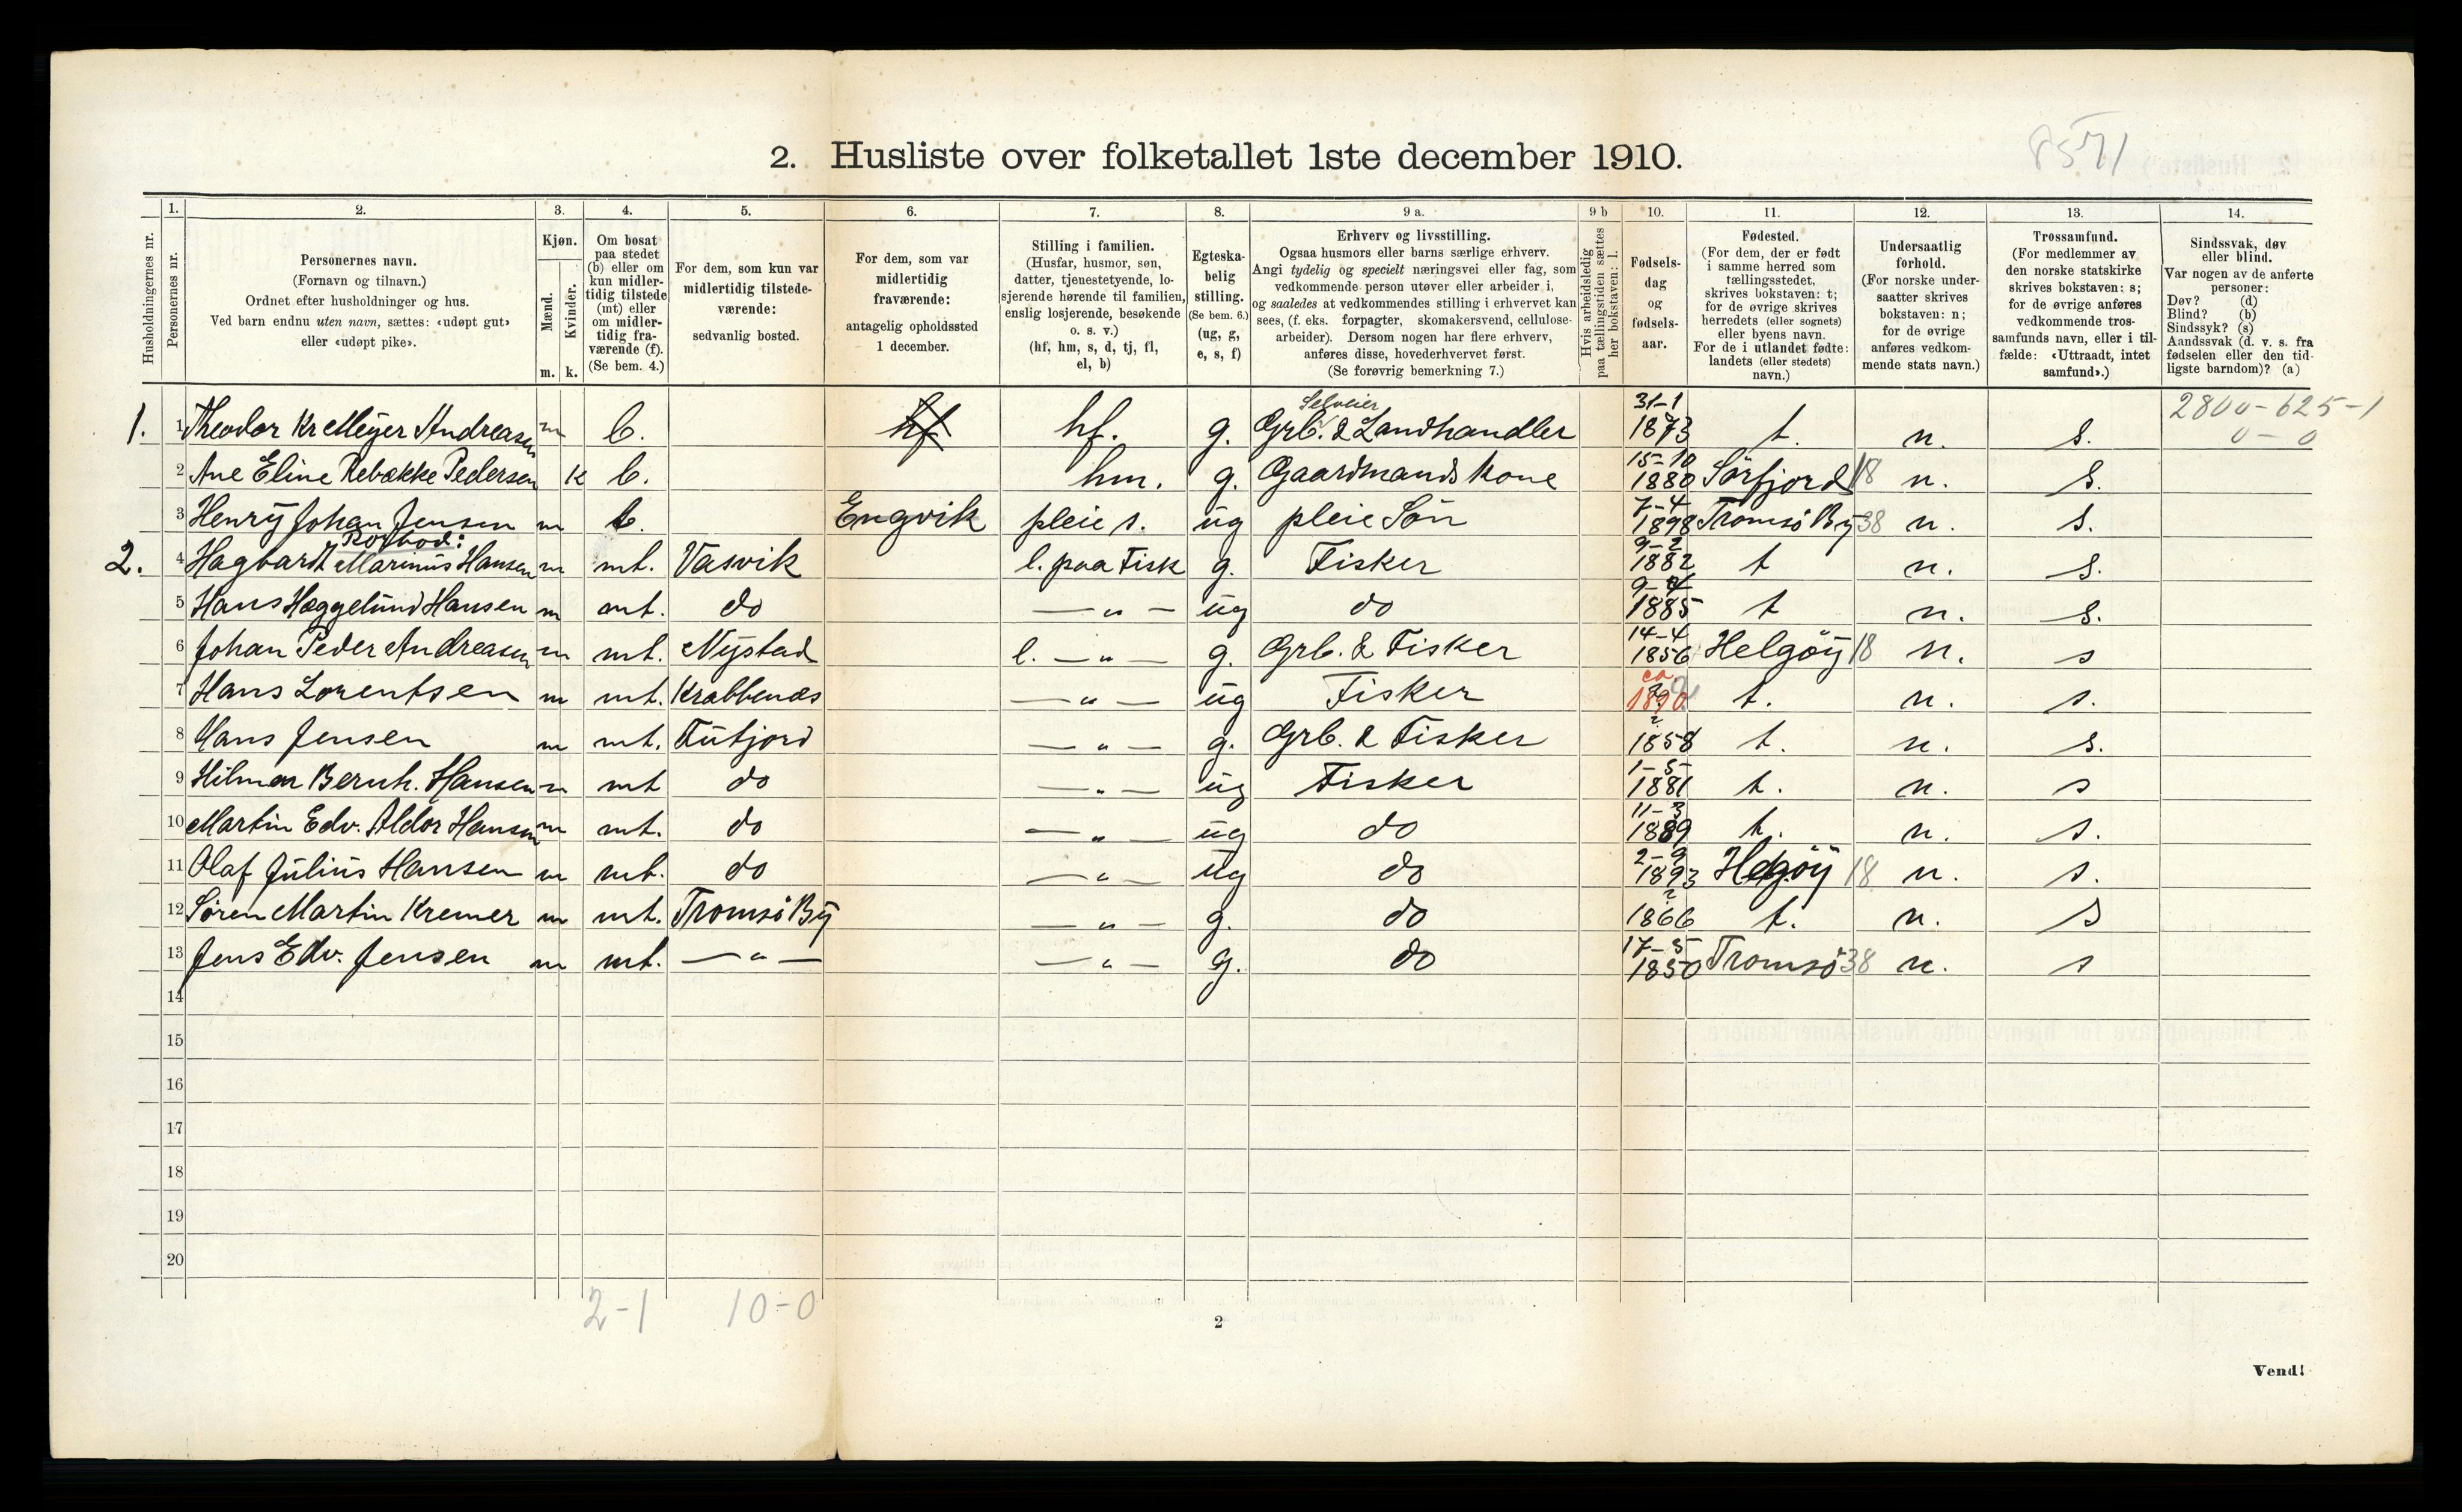 2. Husliste over folketallet 1ste december 1910.
8571
1. 2. 3. 4. 5. 6. 7. 8. 9 a. 9 b 10. 11. 12. 13. 14.
Husholdningernes nr.
Personernes nr.
Personernes navn.
(Fornavn og tilnavn.)
Ordnet efter husholdninger og hus.
Ved barn endnu uten navn, sættes: «udøpt gut»
eller «udøpt pike».
Kjøn.
Mænd.
Kvinder.
m. k.
Om bosat
paa stedet
(b) eller om
kun midler-
tidig tilstede
(mt) eller
om midler-
tidig fra-
værende (f).
(Se bem. 4.)
For dem, som kun var
midlertidig tilstede-
værende:
sedvanlig bosted.
For dem, som var
midlertidig
fraværende:
antagelig opholdssted
1 december.
Stilling i familien.
(Husfar, husmor, søn,
datter, tjenestetyende, lo-
sjerende hørende til familien,
enslig losjerende, besøkende
o. s. v.)
(hf, hm, s, d, tj, fl,
el, b)
Egteska-
belig
stilling.
(Se bem. 6.)
(ug, g,
e, s, f)
Erhverv og livsstilling.
Ogsaa husmors eller barns særlige erhverv.
Angi tydelig og specielt næringsvei eller fag, som
vedkommende person utøver eller arbeider i,
og saaledes at vedkommendes stilling i erhvervet kan
sees, (f. eks. forpagter, skomakersvend, cellulose-
arbeider). Dersom nogen har flere erhverv,
anføres disse, hovederhvervet først.
(Se forøvrig bemerkning 7.)
Hvis arbeidsledig
paa tællingstiden sættes
her bokstaven: l.
Fødsels-
dag
og
fødsels-
aar.
Fødested.
(For dem, der er født
i samme herred som
tællingsstedet,
skrives bokstaven: t;
for de øvrige skrives
herredets (eller sognets)
eller byens navn.
For de i utlandet fødte:
landets (eller stedets)
navn.)
Undersaatlig
forhold.
(For norske under-
saatter skrives
bokstaven: n;
for de øvrige
anføres vedkom-
mende stats navn.)
Trossamfund.
(For medlemmer av
den norske statskirke
skrives bokstaven: s;
for de øvrige anføres
vedkommende tros-
samfunds navn, eller i til-
fælde: «Uttraadt, intet
samfund».)
Sindssvak, døv
eller blind.
Var nogen av de anførte
personer:
Døv? (d)
Blind? (b)
Sindssyk? (s)
Aandssvak (d. v. s. fra
fødselen eller den tid-
ligste barndom)? (a)
Selveier 31-1 2800-625-1
1. 1 Theodor Kr Meyer Andreasen m b. hf hf. g. Grb. & Landhandler 1873 t. n. s. 0-0
15-10
2 Ane Eline Rebække Pedersen k b. hm. g. Gaardmandskone 1880 Sörfjord 18 n. s.
7-4
3 Henry Johan Jensen m b. Engvik pleie s. ug pleie Sön 1898 Tromsö By 38 n. s.
Rorbod: 9-2
2. 4 Hagbardt Marinus Hansen m mt. Vasvik l. paa Fisk g. Fisker 1882 t n. s.
5 Hans Hæggelund Hansen m mt. do — " — ug do 1885 t n. s.
14-4
6 Johan Peder Andreasen m mt. Nystad l. — " — g. Grb. & Fisker 1856 Helgöy 18 n. s
ca
7 Hans Lorentsen m mt. Krabbenæs — " — ug Fisker 1890 t. n. s.
?
8 Hans Jensen m mt. Futjord — " — g. Grb. & Fisker 1858 t. n. s.
1-5-
9 Hilmar Bernh. Hansen m mt do — " — ug Fisker 1881 t. n. s
11-3
10 Martin Edv. Aldor Hansen m mt. do — " — ug do 1889 t. n. s.
2-9
11 Olaf Julius Hansen m mt. do — " — ug do 1893 Helgöy 18 n. s.
?
12 Sören Martin Kremer m mt. Tromsö By — " — g. do 1866 t. n. s
17-5
13 Jens Edv. Jensen m mt. — " — — " — g. do 1850 Tromsö 38 n. s
14
15
16
17
18
19
20
2-1 10-0
2
Vend!